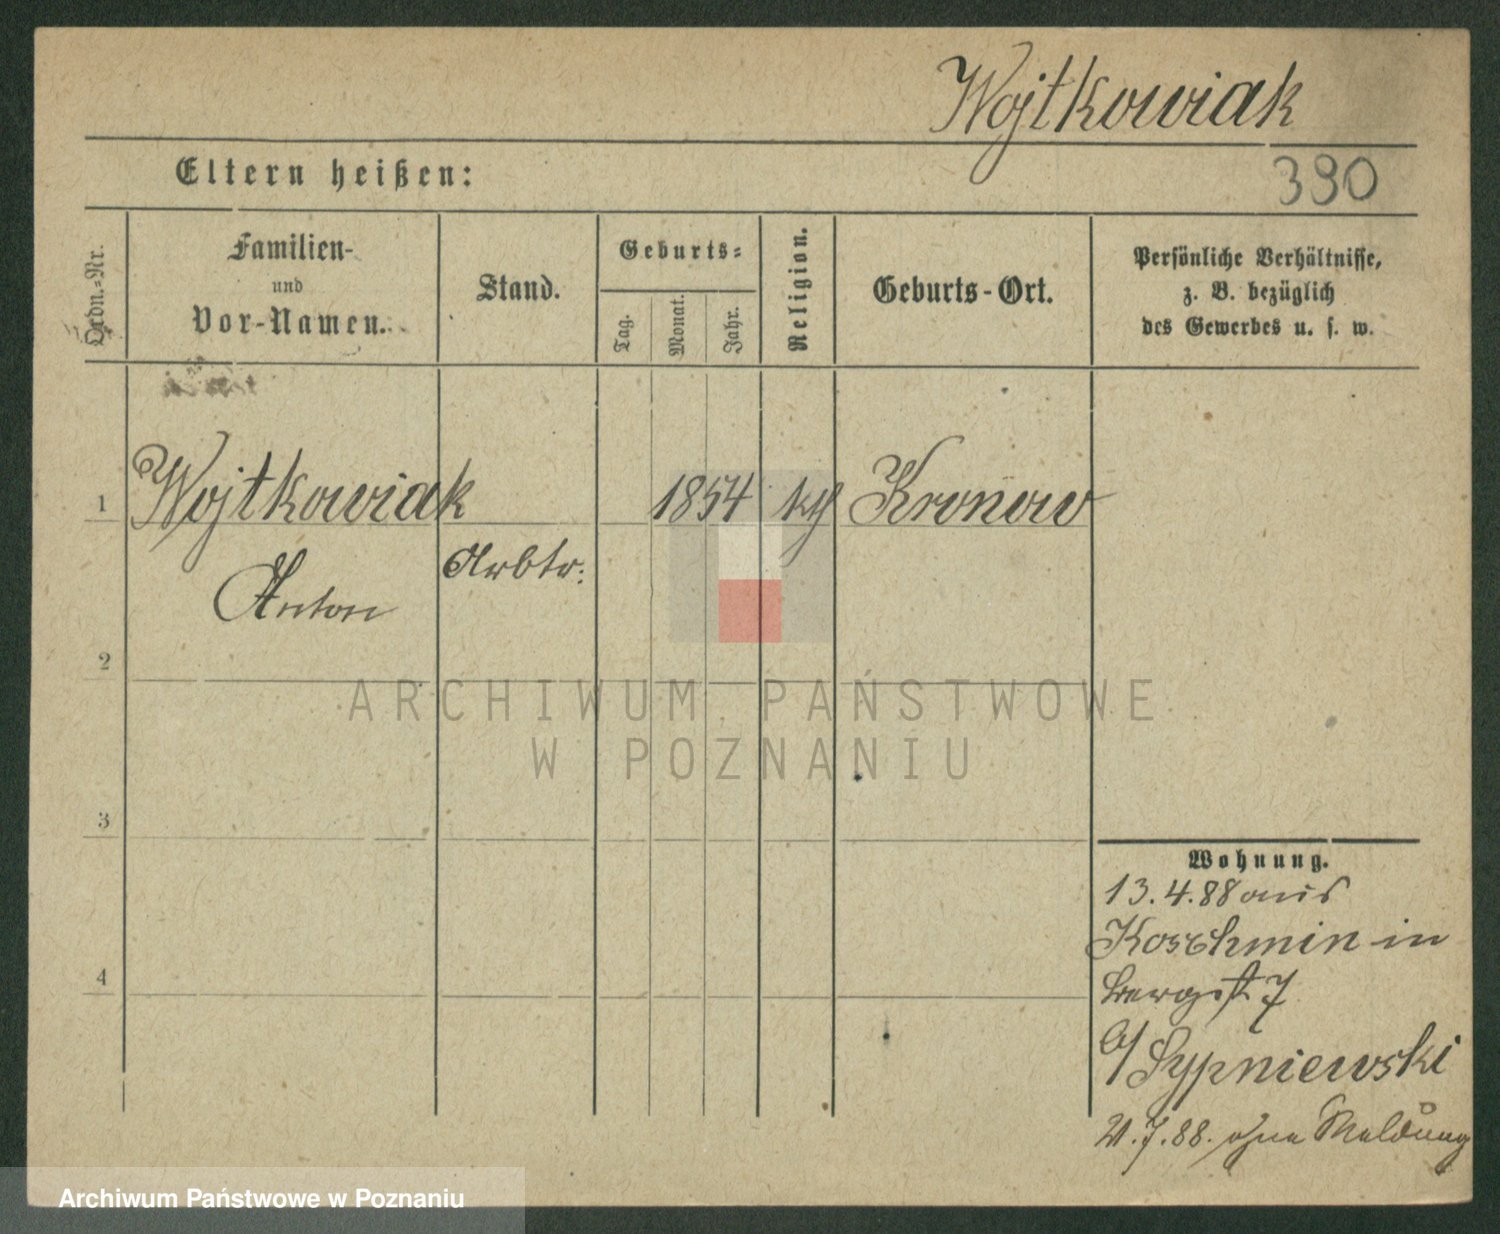 Wojtkowiak
Eltern heißen:
390
Ordn.-Nr.
Familien-
und
Vor-Namen.
Stand.
Geburts-
Tag.
Monat.
Jahr.
Religion.
Geburts-Ort.
Persönliche Verhältnisse,
z. B. bezüglich
des Gewerbes u. s. w.
1
Wojtkowiak
1854
kth
Kronow
Arbtr.
Anton
2
ARCHIWUM PAŃSTWOWE
W POZNANIU
3
Wohnung.
13.4.88 aus
Koschmin in
Bergst 7
b/Sypniewski
4
21.7.88. ohne Meldung
Archiwum Państwowe w Poznaniu